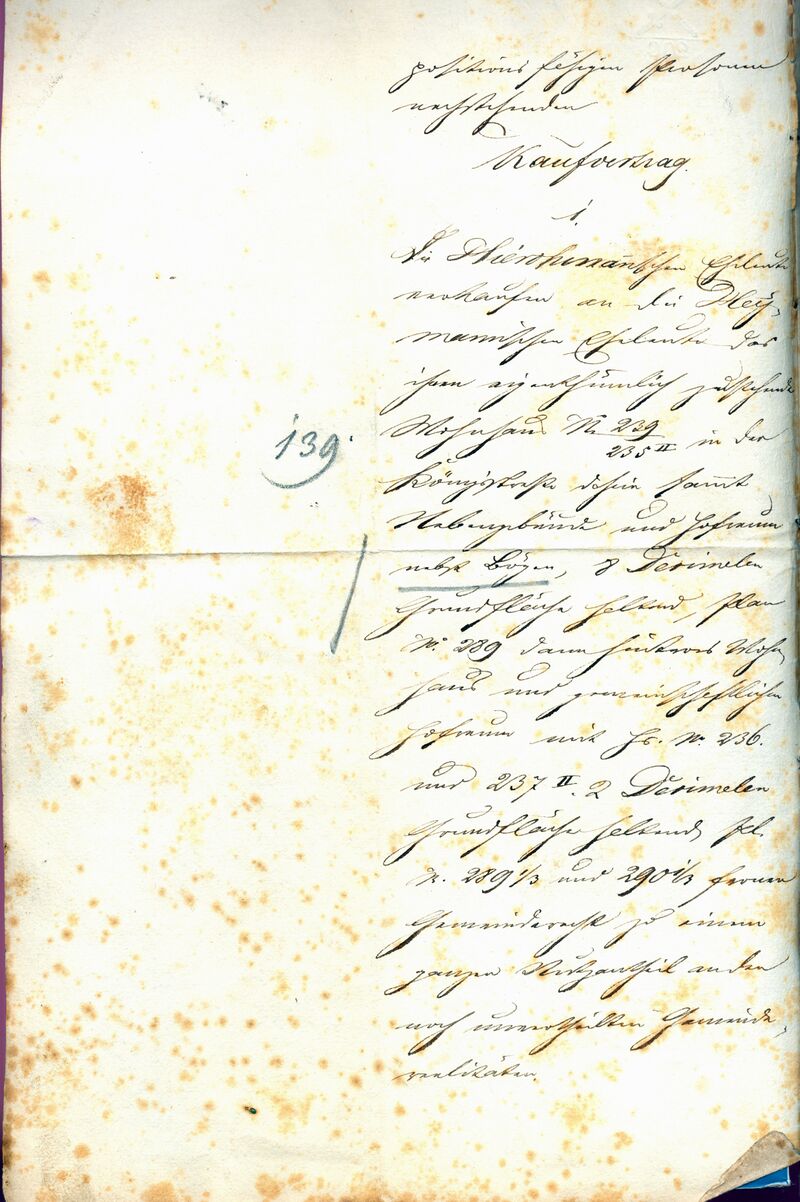 positions fähigen Personen
nachstehenden
Kaufvertrag.
1.
Die schen Eheleute
verkaufen an die Hey-
mannischen Eheleute das
ihnen eigenthümlich zustehende
Wohnhaus No 239/235 II in der
Königsstraße dahier sammt
Nebengebäude und Hofraum
139.
nebst Bögen, 8 Decimelen
Grundfläche haltend, Plan
No. 289 dann hinteres Wohn-
haus und gemeinschaftlichen
Hofraum mit Hs. No. 236.
und 237 II. 2 Decimelen
Grundfläche haltend, Pl.
N. 289 1/3 und 290 1/3 ferner
Gemeinderecht zu einem
ganzen Nutzantheil an den
noch unvertheilten Gemeinde-
realitäten.